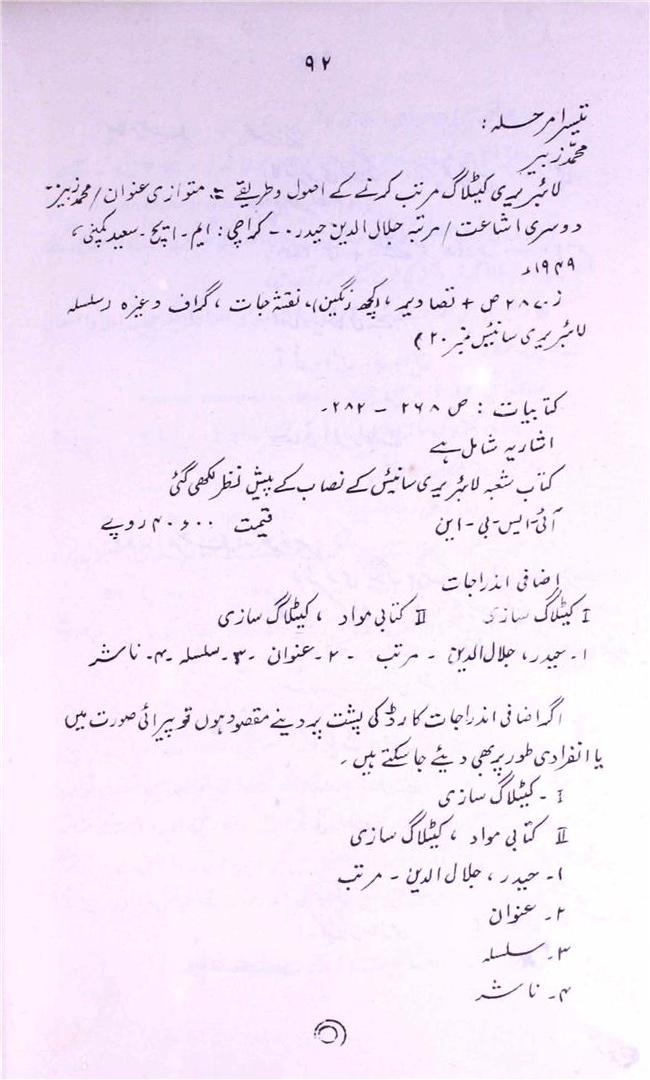 ۹۲
تیسرا مرحلہ :
محمد زبیر
لائبریری کیٹلاگ مرتب کرنے کے اصول و طریقے = متوازی عنوان / محمد زبیر۔
دوسری اشاعت / مرتبہ جلال الدین حیدر ۔ ۔ کراچی : ایم ۔ ایچ ۔ سعید کمپنی ،
۱۹۴۹ء
ز ، ۲۸۷ ص + تصاویر ، (کچھ رنگین) ، نقشہ جات ، گراف وغیرہ (سلسلہ
لائبریری سائنس نمبر ۲۰ )
کتابیات : ص ۲۶۸ ۔ ۲۸۲ ۔
اشاریہ شامل ہے
کتاب شعبہ لائبریری سائنس کے نصاب کے پیش نظر لکھی گئی
آئی۔ایس۔بی۔این قیمت ۴۰٫۰۰ روپے
اضافی اندراجات
I کیٹلاگ سازی II کتابی مواد ، کیٹلاگ سازی
۱۔ حیدر، جلال الدین ۔ مرتب ۔ ۲۔ عنوان ۔ ۳۔ سلسلہ ۔ ۴۔ ناشر
اگر اضافی اندراجات کارڈ کی پشت پر دینے مقصود ہوں تو پیرائی صورت میں
یا انفرادی طور پر بھی دیئے جا سکتے ہیں ۔
I ۔ کیٹلاگ سازی
II کتابی مواد ، کیٹلاگ سازی
۱۔ حیدر ، جلال الدین ۔ مرتب
۲۔ عنوان
۳۔ سلسلہ
۴۔ ناشر